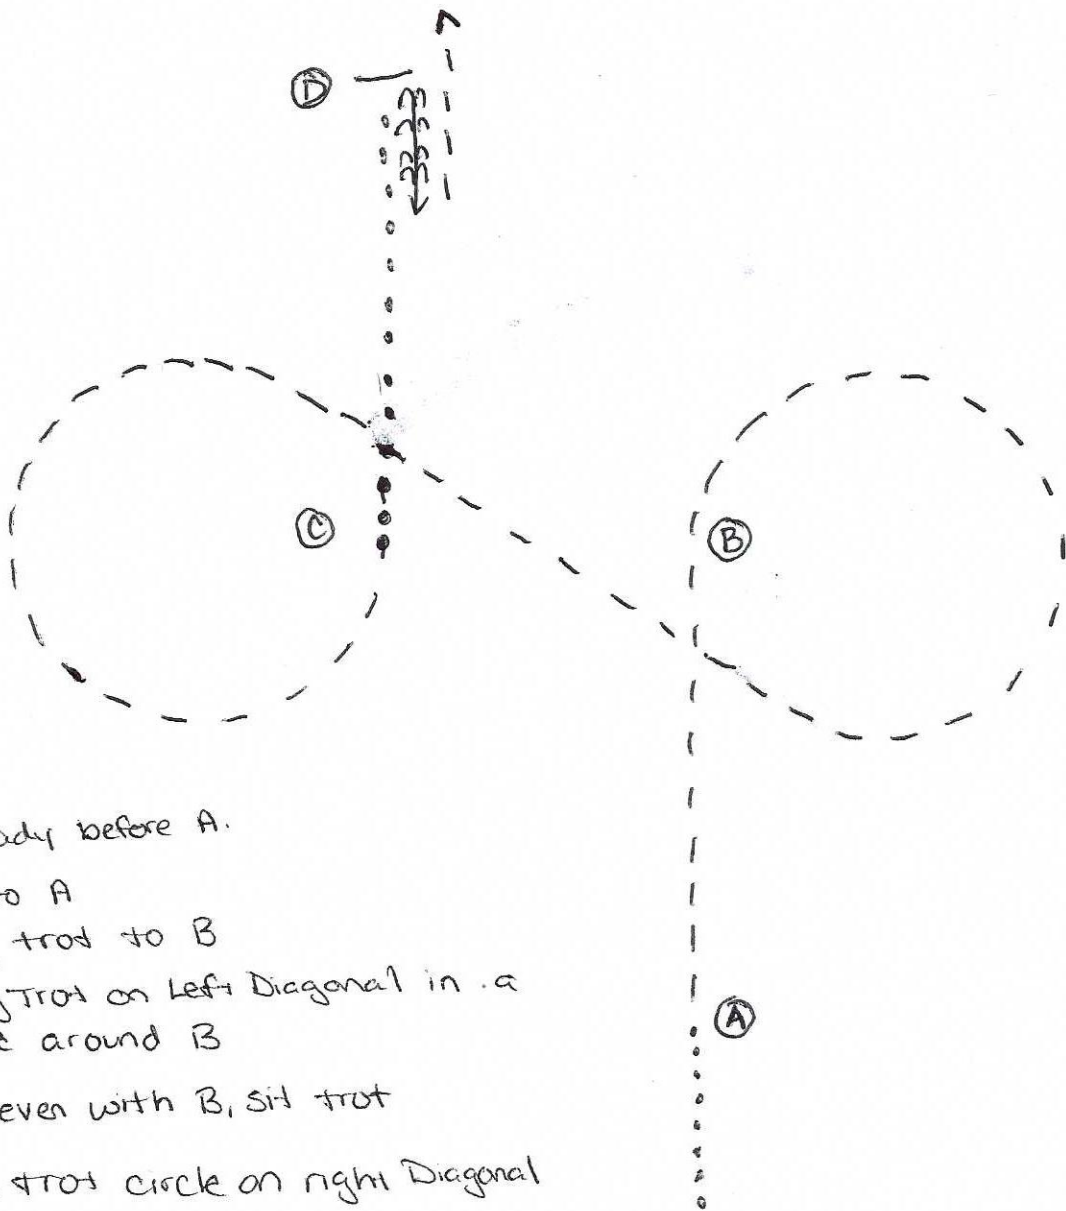 D
C
B
before A.
A
trot to B
Trot on Left Diagonal in a
around B
even with B, sit trot
trot circle on right Diagonal
A